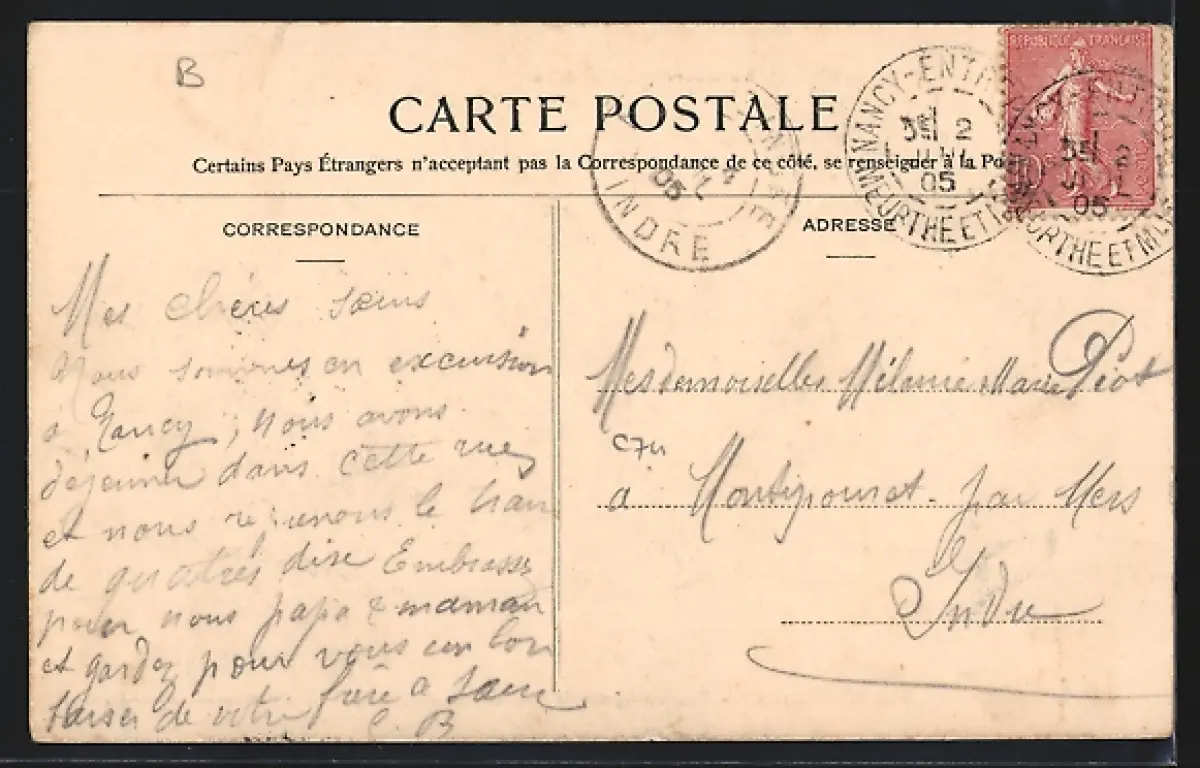 B
CARTE POSTALE
Certains Pays Étrangers n'acceptant pas la Correspondance de ce côté, se renseigner à la Po
CORRESPONDANCE
ADRESSE
REPUBLIQUE FRANÇAISE
NANCY-ENT
2
JUIL
05
MEURTHE ET M
2
05
URTHE ET M
05
INDRE
Mes chères sœurs
Nous sommes en excursion
a Nancy, nous avons
déjeuner dans cette rue
et nous reprenons le train
de quatres dix Embrassez
pour nous papa & maman
et gardez pour vous un bon
baiser de votre frère a sœur
C. B
Mesdemoiselles Mélanie Marie Péot
a Montipouret par Mers
Indre